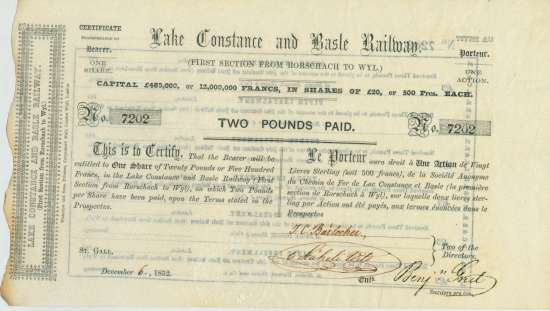 CERTIFICATE
Bearer.
Lake Constance and Basle Railway.
Porteur.
(FIRST SECTION FROM RORSCHACH TO WYL.)
ONE
SHARE.
ONE
ACTION.
CAPITAL £485,000, or 12,000,000 FRANCS, IN SHARES OF £20, or 500 Frcs. EACH.
No. 7202
No. 7202
TWO POUNDS PAID.
This is to Certify, That the Bearer will be
entitled to One Share of Twenty Pounds or Five Hundred
Francs, in the Lake Constance and Basle Railway (First
Section from Rorschach to Wyl), on which Two Pounds
per Share have been paid, upon the Terms stated in the
Prospectus.
Le Porteur aura droit à Une Action de Vingt
Livres Sterling (soit 500 francs), de la Société Anonyme
du Chemin de Fer de Lac Constance et Basle (la première
section de Rorschach à Wyl), sur laquelle deux livres ster-
ling par Action ont été payés, aux termes énoncées dans le
Prospectus
Two of the
Directors.
ST. GALL,
December 6, 1852.
Entd.
LAKE CONSTANCE AND BASLE RAILWAY.
First Section, from Rorschach to Wyl.